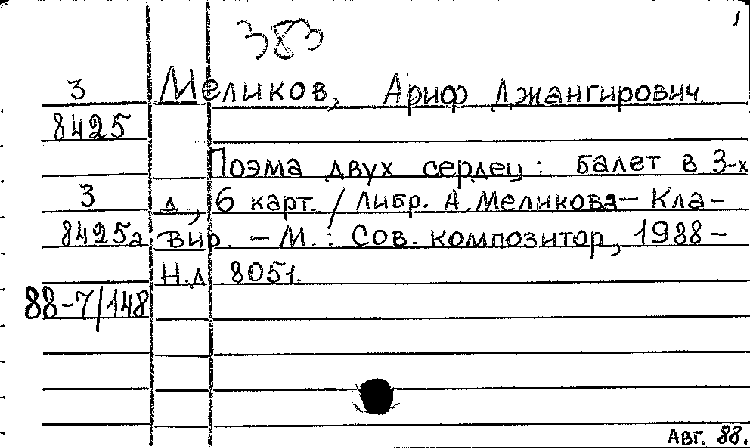 383
1
3 Меликов, Ариф Джангирович
8425
Поэма двух сердец: балет в 3-х
3 д., 6 карт. / Либр. А. Меликова – Кла-
8425а вир. – М.: Сов. композитор, 1988 –
Н.д. 8051.
88-7/148
Авг. 88.